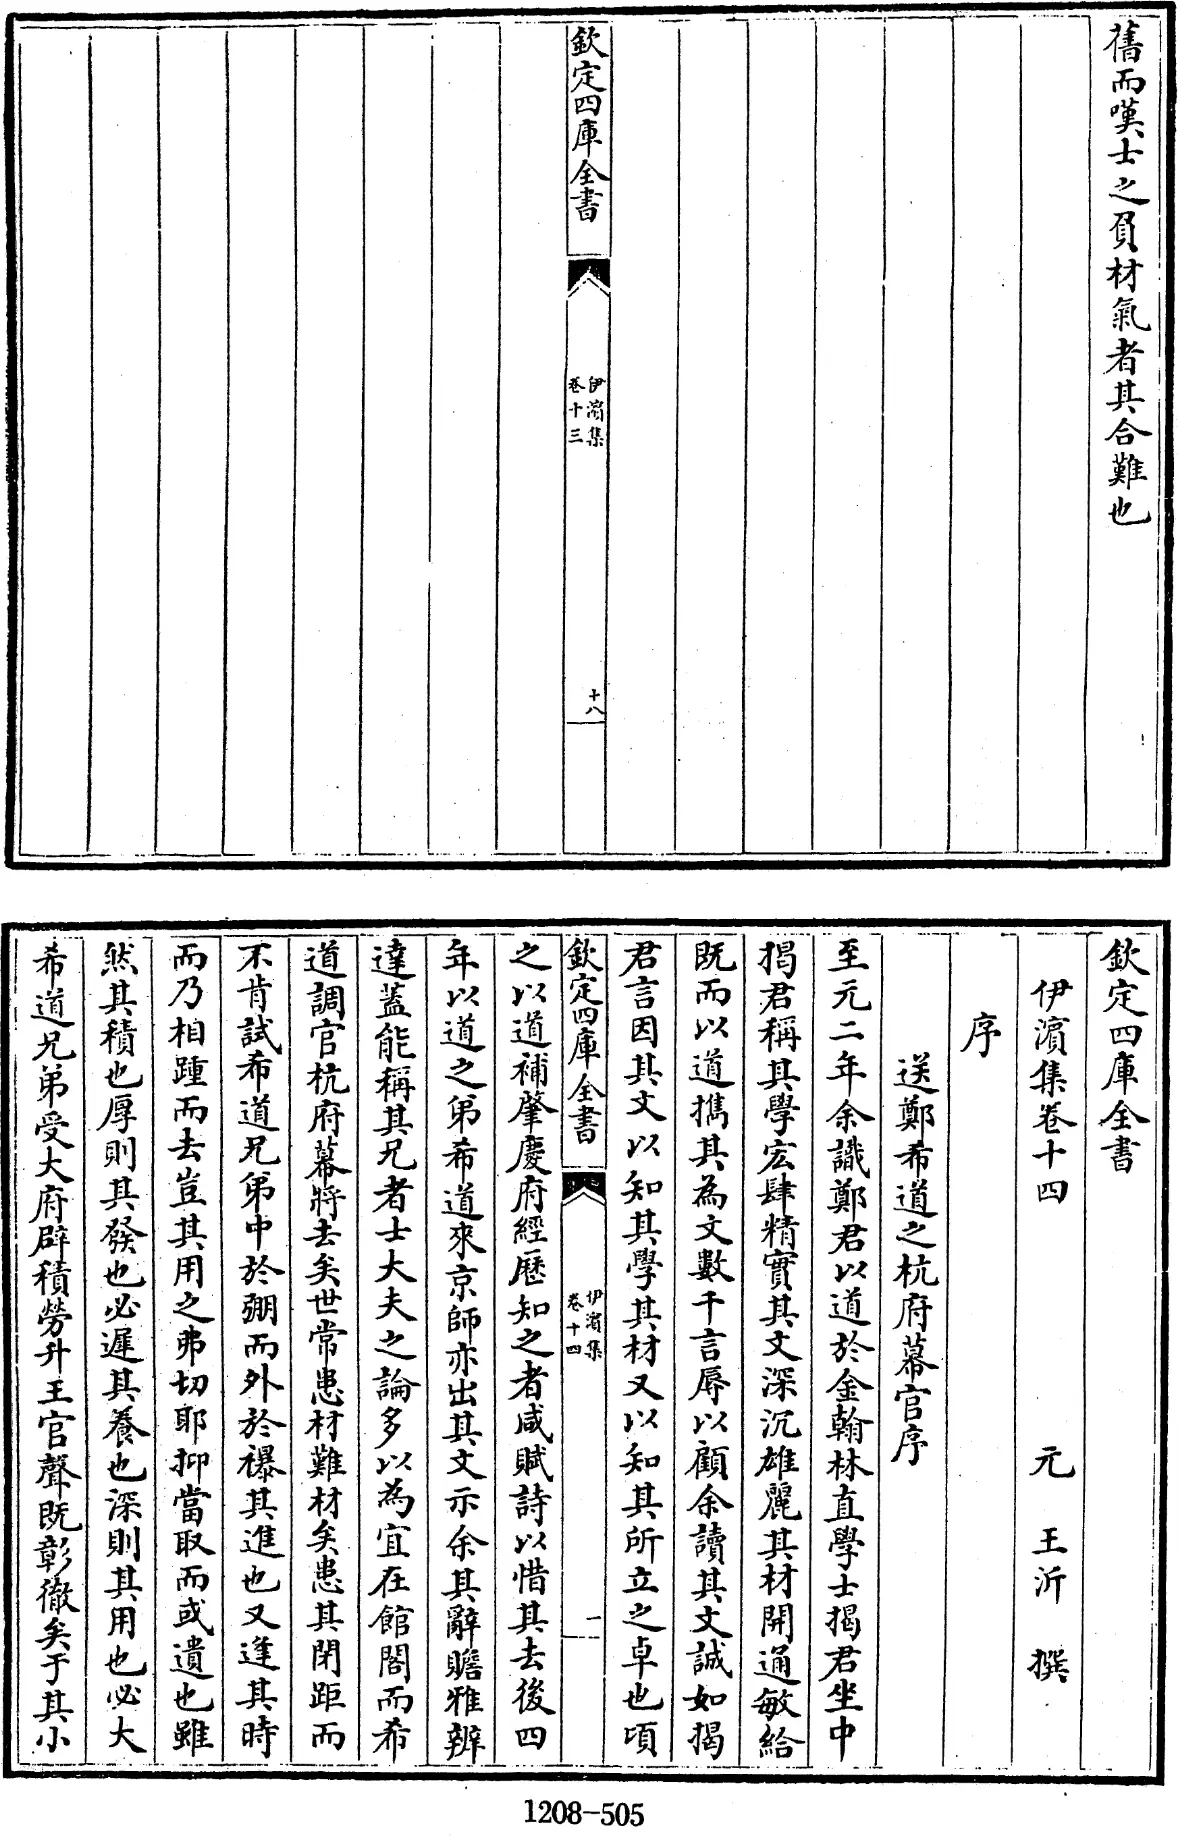 舊而嘆士之負材氣者其合難也
欽定四庫全書
伊濱集
卷十三
十八
欽定四庫全書
伊濱集卷十四
元 王沂 撰
序
送鄭希道之杭府幕官序
至元二年余識鄭君以道於金翰林直學士揭君坐中
揭君稱其學宏肆精實其文深沉雄麗其材開通敏給
既而以道攜其為文數千言辱以顧余讀其文誠如揭
君言因其文以知其學其材又以知其所立之卓也頃
欽定四庫全書
伊濱集
卷十四
一
之以道補肇慶府經歷知之者咸賦詩以惜其去後四
年以道之弟希道來京師亦出其文示余其辭贍雅辨
達蓋能稱其兄者士大夫之論多以為宜在館閣而希
道調官杭府幕將去矣世常患材難材矣患其閉距而
不肯試希道兄弟中於弸而外於襮其進也又逢其時
而乃相踵而去豈其用之弗切耶抑當取而或遺也雖
然其積也厚則其發也必遲其養也深則其用也必大
希道兄弟受大府辟積勞升王官聲既彰徹矣于其小
1208-505